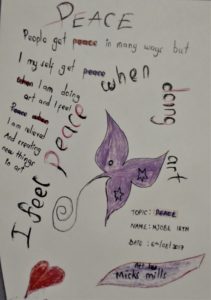 PEACE
People get peace in many ways but
I my self get peace
when I am doing
art and I feel
Peace when
I am relived
And creating
new things
in art
I feel Peace when doing art
TOPIC: PEACE
NAME:
DATE:
Art by
Micks mills